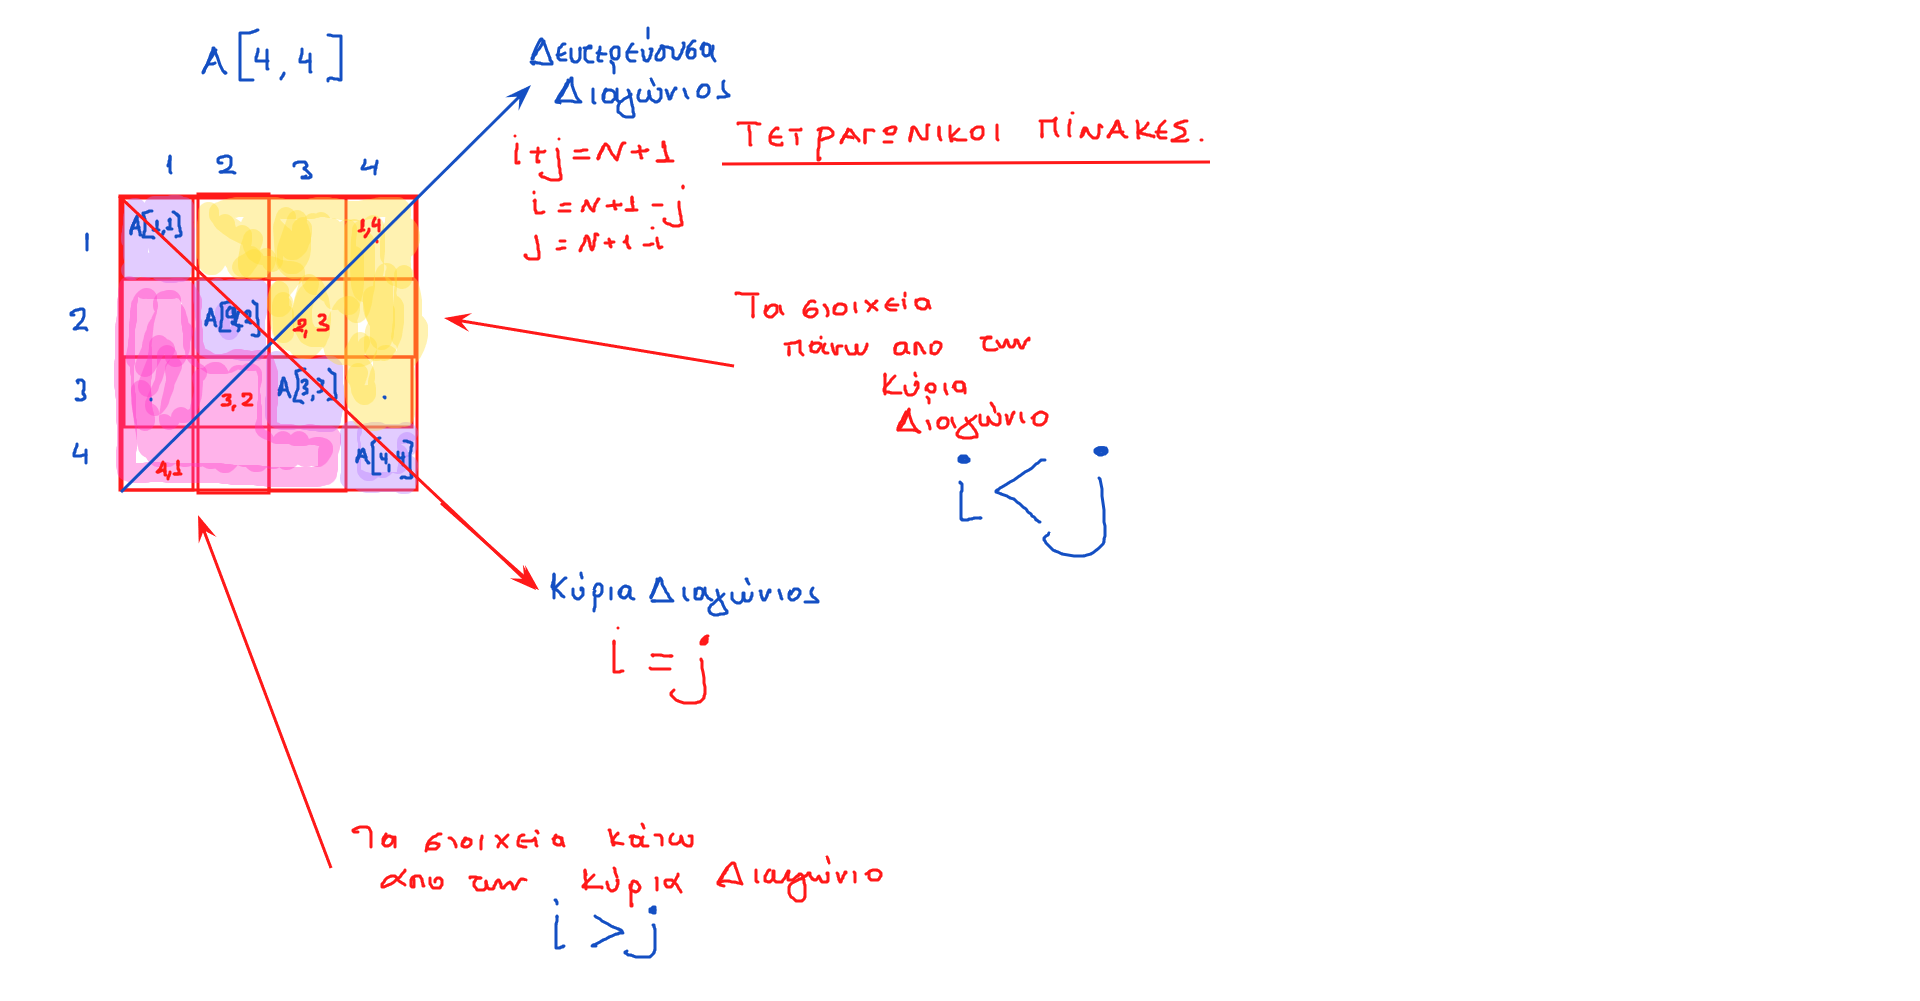 A[4,4]
Δευτερεύουσα
Διαγώνιος
ΤΕΤΡΑΓΩΝΙΚΟΙ ΠΙΝΑΚΕΣ.
i+j=N+1
i=N+1-j
j=N+1-i
1 2 3 4
1 A[1,1] 1,4
2 A[2,2] 2,3
3 . 3,2 A[3,3] .
4 4,1 A[4,4]
Τα στοιχεία
πάνω απο την
Κύρια
Διαγώνιο
i<j
Κύρια Διαγώνιος
i=j
Τα στοιχεία κάτω
απο την Κύρια Διαγώνιο
i>j